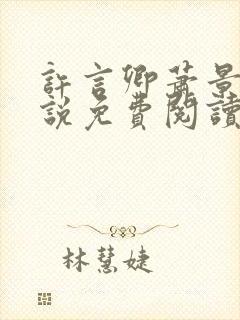 許言卿蕭景
說免費閱讀
林慧婕